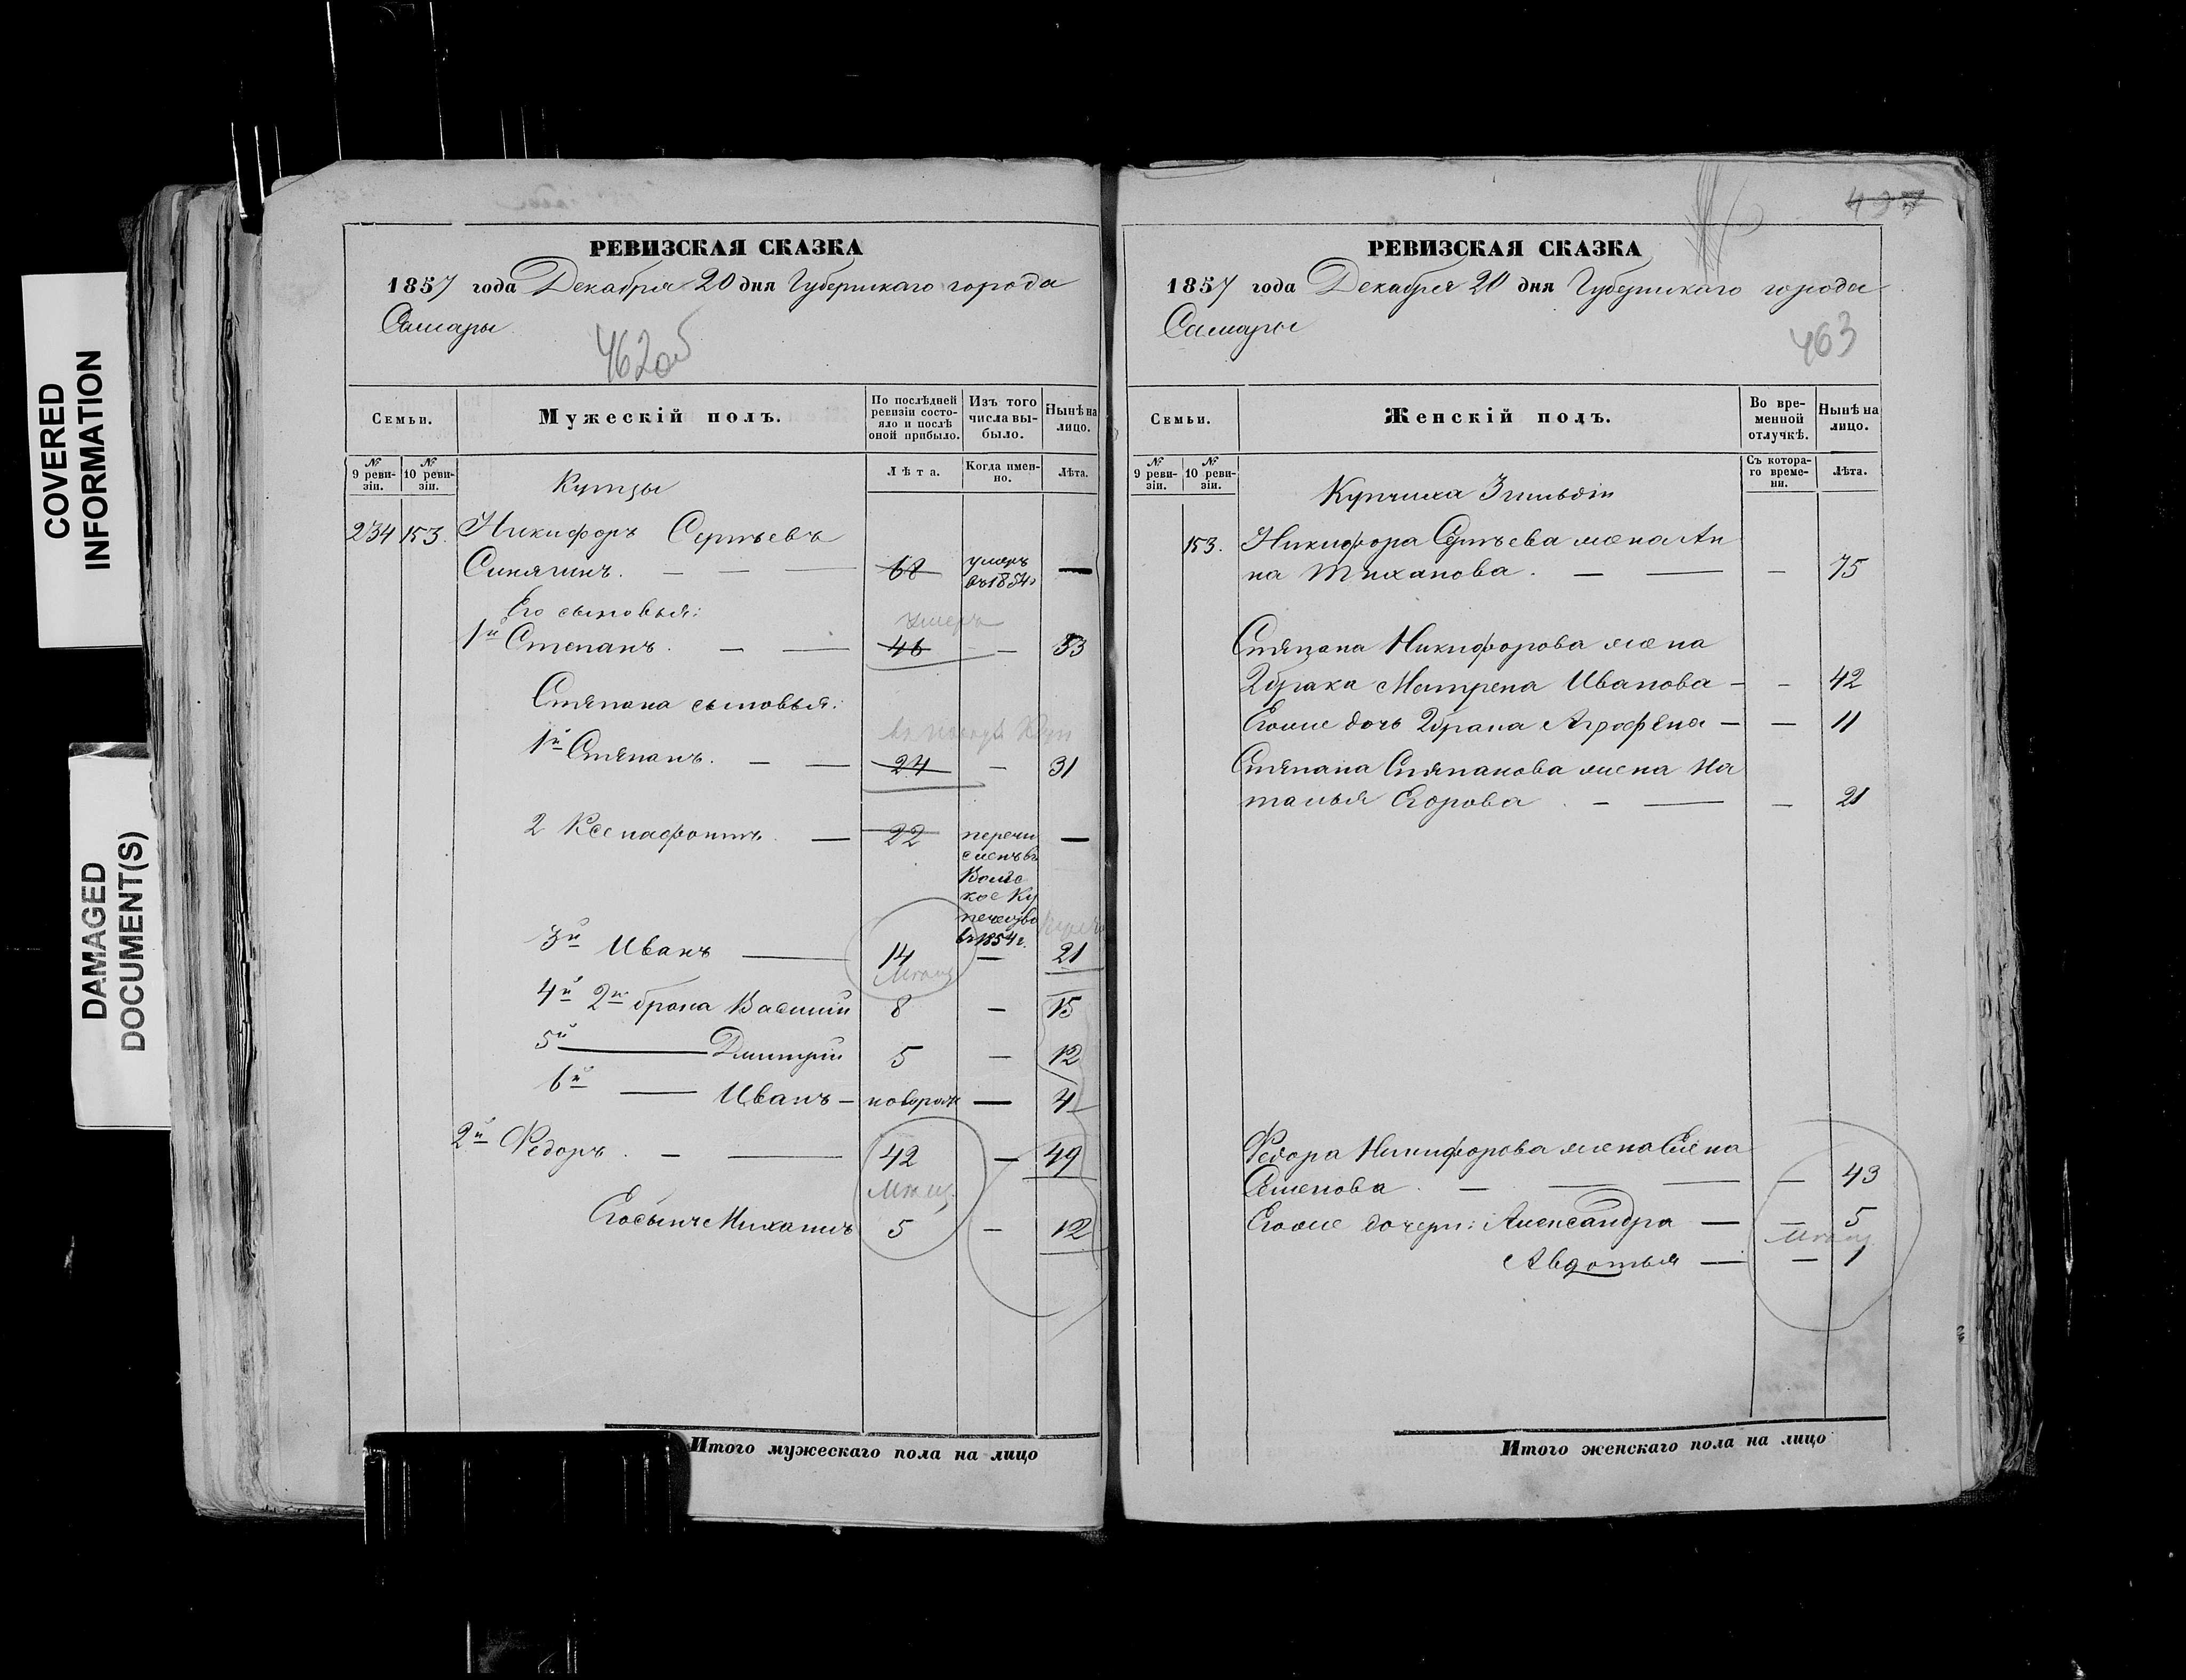 COVERED
INFORMATION
DAMAGED
DOCUMENT(S)
РЕВИЗСКАЯ СКАЗКА
1857 года Декабря 20 дня Губернскаго города
Самары
462об
Семьи.
Мужескій полъ.
По послѣдней ревизіи состояло и послѣ оной прибыло.
Изъ того числа выбыло.
Нынѣ на лицо.
№ 9 ревизіи.
№ 10 ревизіи.
Лѣта.
Когда именно.
Лѣта.
Купцы
234 153. Никифоръ Сергѣевъ
Синягинъ. — — — 68 умеръ въ 1854 —
Его сыновья:
умеръ
1й Степанъ. — — 46 — 53
Степана сыновья:
1й Степанъ. — — 24 — 31
2 Ксенофонтъ. — 22 перечисленъ въ
кое Купечество
въ 1854 г. —
3й Иванъ — 14 — 21
Мѣщ
4й 2го брака Василий 8 — 15
5й — Дмитрий 5 — 12
6й — Иванъ — новорож — 4
2й Федоръ. — — 42 — 49
Мѣщ.
Его сынъ Михаилъ 5 — 12
Итого мужескаго пола на лицо
497
РЕВИЗСКАЯ СКАЗКА
1857 года Декабря 20 дня Губернскаго города
Самары
463
Семьи.
Женскій полъ.
Во временной отлучкѣ.
Нынѣ на лицо.
№ 9 ревизіи.
№ 10 ревизіи.
Съ котораго времени.
Лѣта.
Купчиха 3 гильдіи
153. Никифора Сергѣева жена Ан
на Тиханова. — — — 75
Степана Никифорова жена
2 брака Матрена Иванова — — 42
Его же дочь 2 брака Аграфена — — 11
Степана Степанова жена На
талья Егорова. — — — 21
Федора Никифорова жена Елена
Семенова. — — — — 43
Его же дочери: Александра — — 5
Мѣщ
Авдотья — — 1
Итого женскаго пола на лицо